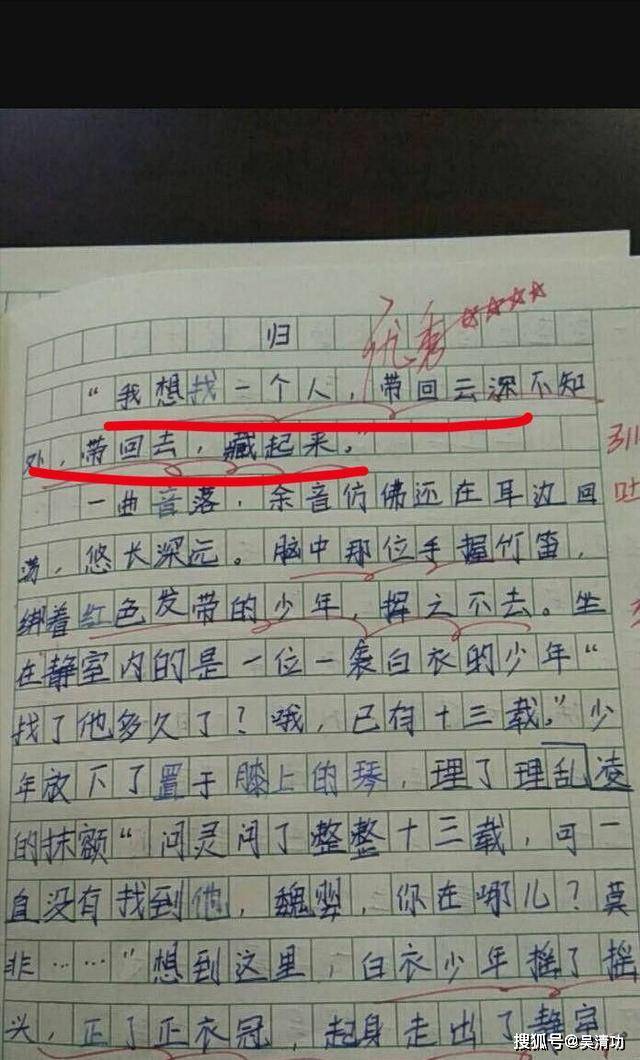 归
优秀
“我想找一个人，带回云深不知
处，带回去，藏起来。”
一曲音落，余音仿佛还在耳边回
荡，悠长深元。脑中那位手握竹笛，
绑着红色发带的少年，挥之不去。坐
在静室内的是一位一袭白衣的少年“
找了他多久了？哦，已有十三载。”少
年放下了置于膝上的琴，理了理乱凌
的抹额“问灵问了整整十三载，可一
直没有找到他，魏婴，你在哪儿？莫
非……”想到这里，白衣少年摇了摇
头，正了正衣冠 起身走出了静室
搜狐号@吴清功